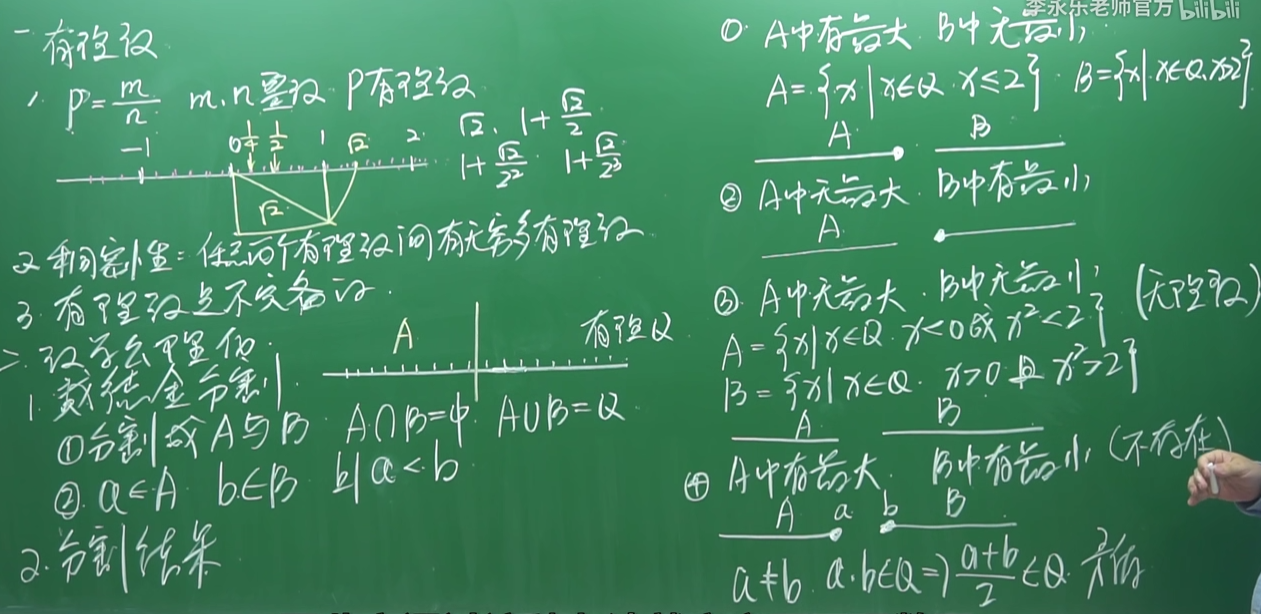 一 有理数
1. P=m/n m.n整数 P有理数
-1 0 1/4 1/2 1 √2 2
√2
√2, 1+√2/2
1+√2/2² 1+√2/2³
2 稠密性: 任意两个有理数间有无穷多有理数
3. 有理数是不完备的.
二. 数学公理化.
1. 戴德金分割
A 有理Q
①分割成A与B A∩B=φ A∪B=Q
②. a∈A b∈B 则 a<b
2. 分割结果
李永乐老师官方 bilibili
①. A中有最大 B中无最小
A={x|x∈Q. x≤2} B={x|x∈Q, x>2}
A B
② A中无最大. B中有最小
A
③. A中无最大. B中无最小 (无理数)
A={x|x∈Q. x<0或 x²<2}
B={x|x∈Q. x>0且 x²>2}
A B
④ A中有最大 B中有最小 (不存在)
A a b B
a≠b a.b∈Q⇒ (a+b)/2∈Q 矛盾